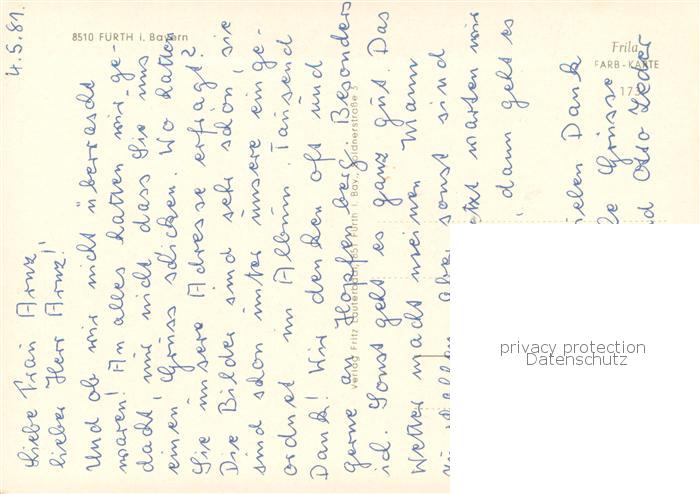 8510 FÜRTH i. Bayern
Frila
FARB-KARTE
173
Verlag Fritz Lauterbach, 851 Fürth i. Bay., Soldnerstraße 5
4.5.81.
Liebe Frau Arnz
lieber Herr Arnz!
Und ob wir nicht überrascht
waren! An alles hatten wir ge-
dacht, nur nicht dass Sie uns
einen Gruss schicken. Wo hatten
Sie unsere Adresse erfragt?
Die Bilder sind sehr schön, sie
sind schon unter unsere einge-
ordnet im Album. Tausend
Dank! Wir denken oft und
gerne an Hopfenberg. Besonders
ich. Sonst geht es ganz gut. Das
Wetter macht meinen Mann
aber sonst sind
warten wir
dann geht es
lieben Dank
Grüsse
Otto Leder
privacy protection
Datenschutz